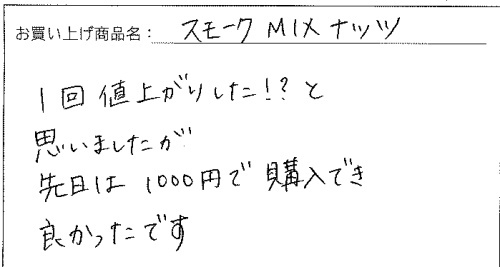 お買い上げ商品名： スモーク MIX ナッツ
1回 値上がりした!?と
思いましたが
先日は 1000円で 購入でき
良かったです